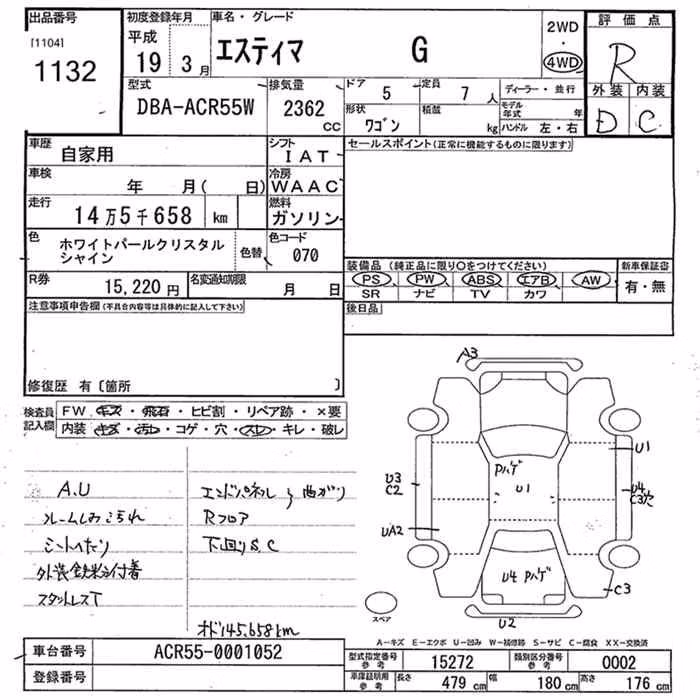 出品番号 初度登録年月 車名・グレード 評価点
[1104] 平成 エスティマ G 2WD・4WD R
1132 19 3月
型式 排気量 ドア 5 定員 7人 ディーラー・並行 外装 内装
DBA-ACR55W 2362 cc 形状 ワゴン 積載 kg モデル年式 年 D C
ハンドル 左・右
車歴 自家用 シフト IAT セールスポイント(正常に機能するものに限ります)
車検 年 月( 日) 冷房 WAAC
走行 14万5千658 km 燃料 ガソリン
色 ホワイトパールクリスタルシャイン 色替 色コード 070
装備品(純正品に限り○をつけてください) 新車保証書
R券 15,220円 名変通知期限 月 日 PS PW ABS エアB AW 有・無
SR ナビ TV カワ
注意事項申告欄(不具合内容等は具体的に記入して下さい) 後日品
修復歴 有〔箇所 〕
検査員記入欄 FW キズ・飛石・ヒビ割・リペア跡・×要
内装 キズ・汚レ・コゲ・穴・スレ・キレ・破レ
A3
U1
Pハゲ
U1
U3
C2
U4
C3穴
UA2
U4 Pハゲ
C3
U2
スペア
A.U エンドパネル 曲がり
Rフロア
シートヘたり 下回りS,C
外装鉄粉付着
スタットレスT
オド145.658km
A-キズ E-エクボ U-凹み W-補修跡 S-サビ C-腐食 XX-交換済
車台番号 ACR55-0001052 型式指定番号 参考 15272 類別区分番号 参考 0002
登録番号 車庫証明用 参考 長さ 479cm 幅 180cm 高さ 176cm